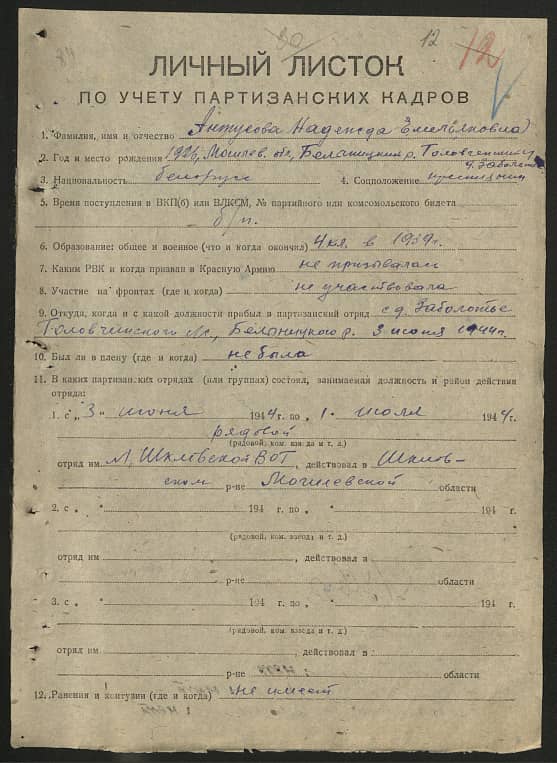 84 30 12 12
ЛИЧНЫЙ ЛИСТОК
ПО УЧЕТУ ПАРТИЗАНСКИХ КАДРОВ
1. Фамилия, имя и отчество Янтусова Надежда Емельяновна
2. Год и место рождения 1926, Могилев. обл, Белыницкий р. Головчинский
д. Заболотье
3. Национальность белорусс 4. Соцположение крестьянин
5. Время поступления в ВКП(б) или ВЛКСМ, № партийного или комсомольского билета
б/п.
6. Образование: общее и военное (что и когда окончил) 4 кл. в 1939г.
7. Каким РВК и когда призван в Красную Армию не призывалась
8. Участие на фронтах (где и когда) не участвовала
9. Откуда, когда и с какой должности прибыл в партизанский отряд с д. Заболотье
Головчинского с/с, Белыницкого р. 3 июня 1944г.
10. Был ли в плену (где и когда) не была
11. В каких партизанских отрядах (или группах) состоял, занимаемая должность и район действия
отряда:
1. с „ 3 " июня 1944 г. по „ 1 . июля 1944 г.
рядовой
(рядовой, ком. взвода и т. д.)
отряд им. Шкловской ВОГ, действовал в Шклов-
ском р-не Могилевской области
2. с „ " 194 г. по „ " 194 г.
(рядовой, ком. взвода и т. д.)
отряд им , действовал в
р-не области
3. с „ " 194 г. по „ " 194 г.
(рядовой, ком. взвода и т. д.)
отряд им , действовал в
р-не области
12. Ранения и контузии (где и когда) не имеет